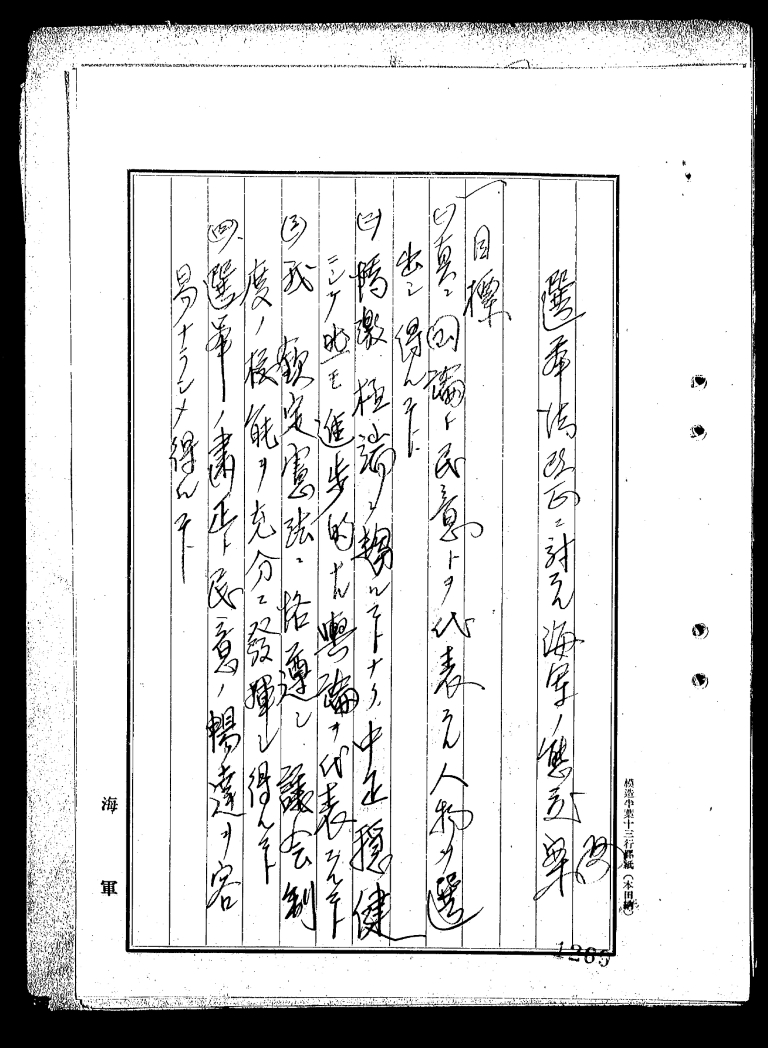 選挙法改正ニ対スル海軍ノ態度
一目標
(一)真ニ国論ト民意トヲ代表スル人物ヲ選
出シ得ルコト
(二)矯激極端ニ趨ルコトナク中正穏健
ニシテ且モ進歩的ナル輿論ヲ代表スルコト
(三)我欽定憲法ニ恪遵シ議会制
度ノ機能ヲ充分ニ発揮シ得ルコト
(四)選挙ノ粛正ト民意ノ暢達ヲ容
易ナラシメ得ルコト
模造半葉十三行罫紙(本田納)
海軍
1285